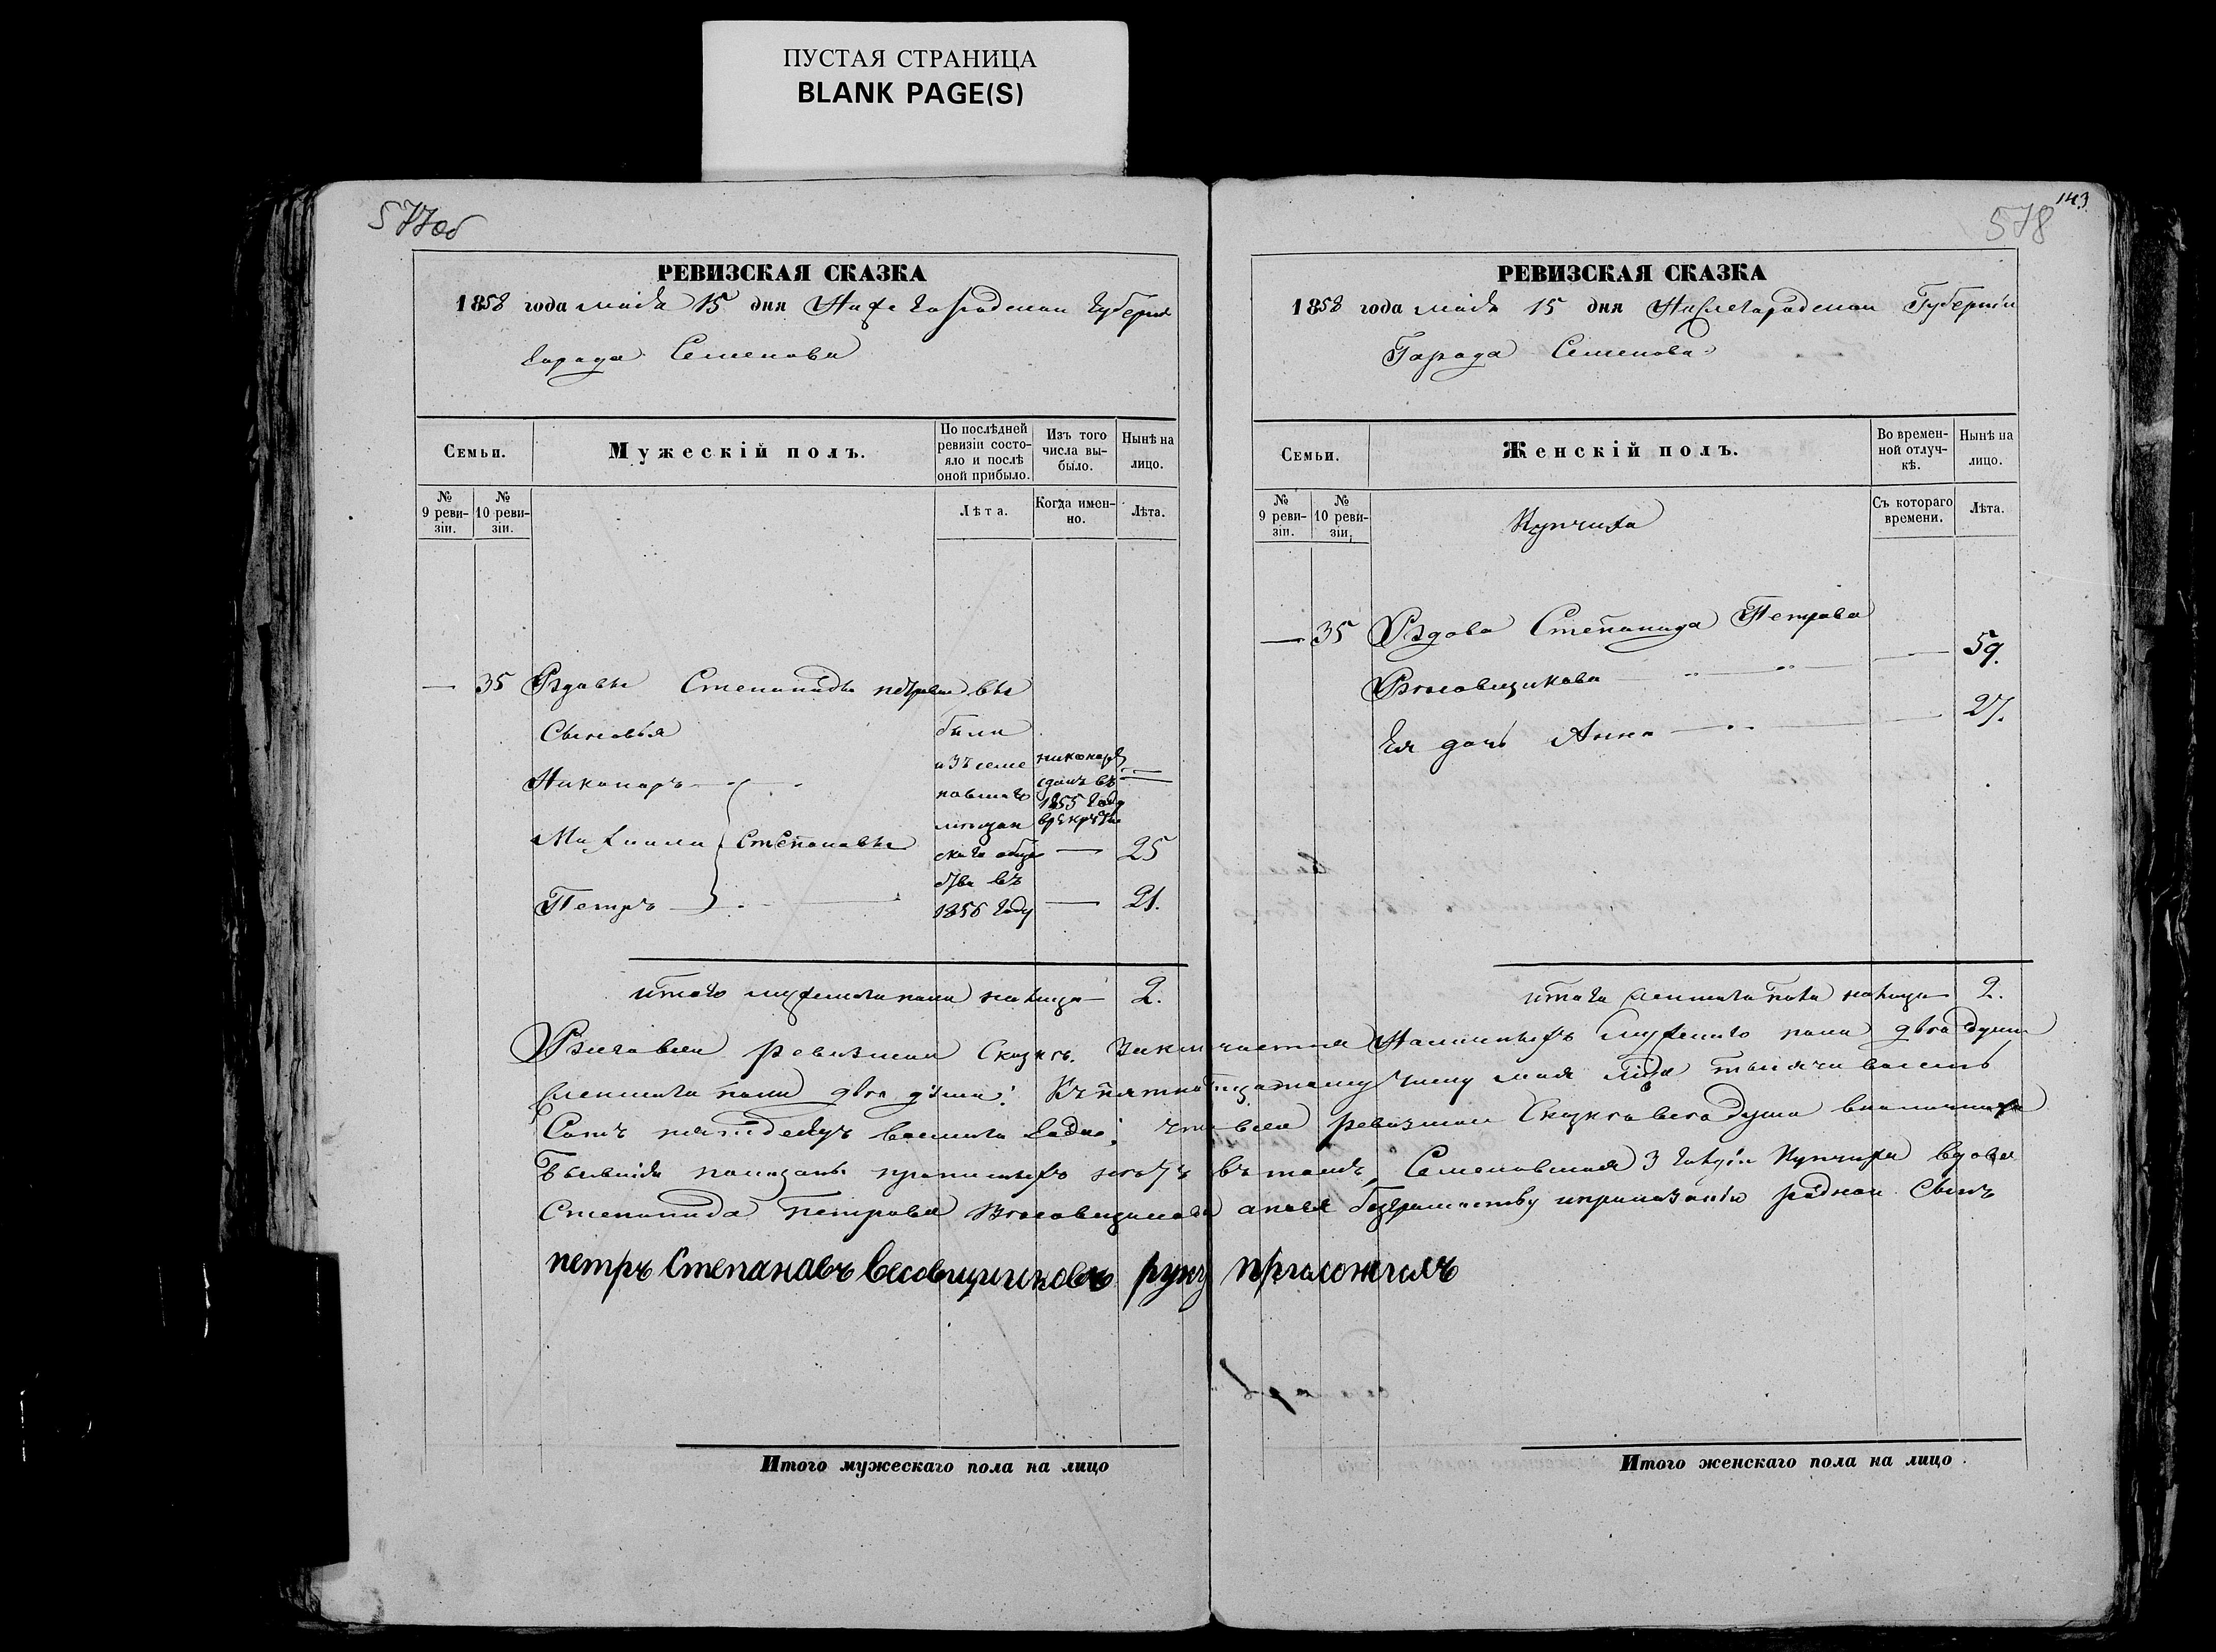 ПУСТАЯ СТРАНИЦА
BLANK PAGE(S)
577об
РЕВИЗСКАЯ СКАЗКА
1858 года маія 15 дня Нижегородской губерніи
города Семенова
Семьи.
Мужескій полъ.
По послѣдней ревизіи состояло и послѣ оной прибыло.
Изъ того числа выбыло.
Нынѣ на лицо.
№ 9 ревизіи.
№ 10 ревизіи.
Лѣта.
Когда именно.
Лѣта.
— 35 Вдовы Степаниды петровой
Сыновья
Никаноръ
Михаила Степановы — 25
Петръ — 21.
были
изъ семе
новскаго
мещан
скаго обще
ства въ
1856 году
никаноръ
сданъ въ
1855 году
врекруты
итого мужескаго пола налицо 2.
143
578
РЕВИЗСКАЯ СКАЗКА
1858 года маія 15 дня Нижегородской Губерніи
Города Семенова
Семьи.
Женскій полъ.
Во временной отлучкѣ.
Нынѣ на лицо.
№ 9 ревизіи.
№ 10 ревизіи.
Съ котораго времени.
Лѣта.
Купчиха
— 35 Вдова Степанида Петрова
Весовщикова — 59.
Ея дочь Анна — 27.
итого женскаго пола налицо 2.
ревизской Сказкѣ заключается мужескаго пола две души
женскаго пола две души. Къ пятнадцатому числу мая тысяча восемь
Сотъ пятдесятъ восьмаго года; ревизской Сказке все души
показаны нетъ въ томъ, Семеновская 3 гильдіи Купчиха вдова
Степанида Петрова Весовщикова аповя безграмотству иприказанію родной Сынъ
петръ Степанавъ весовщиковъ руку приложилъ
Итого мужескаго пола на лицо
Итого женскаго пола на лицо